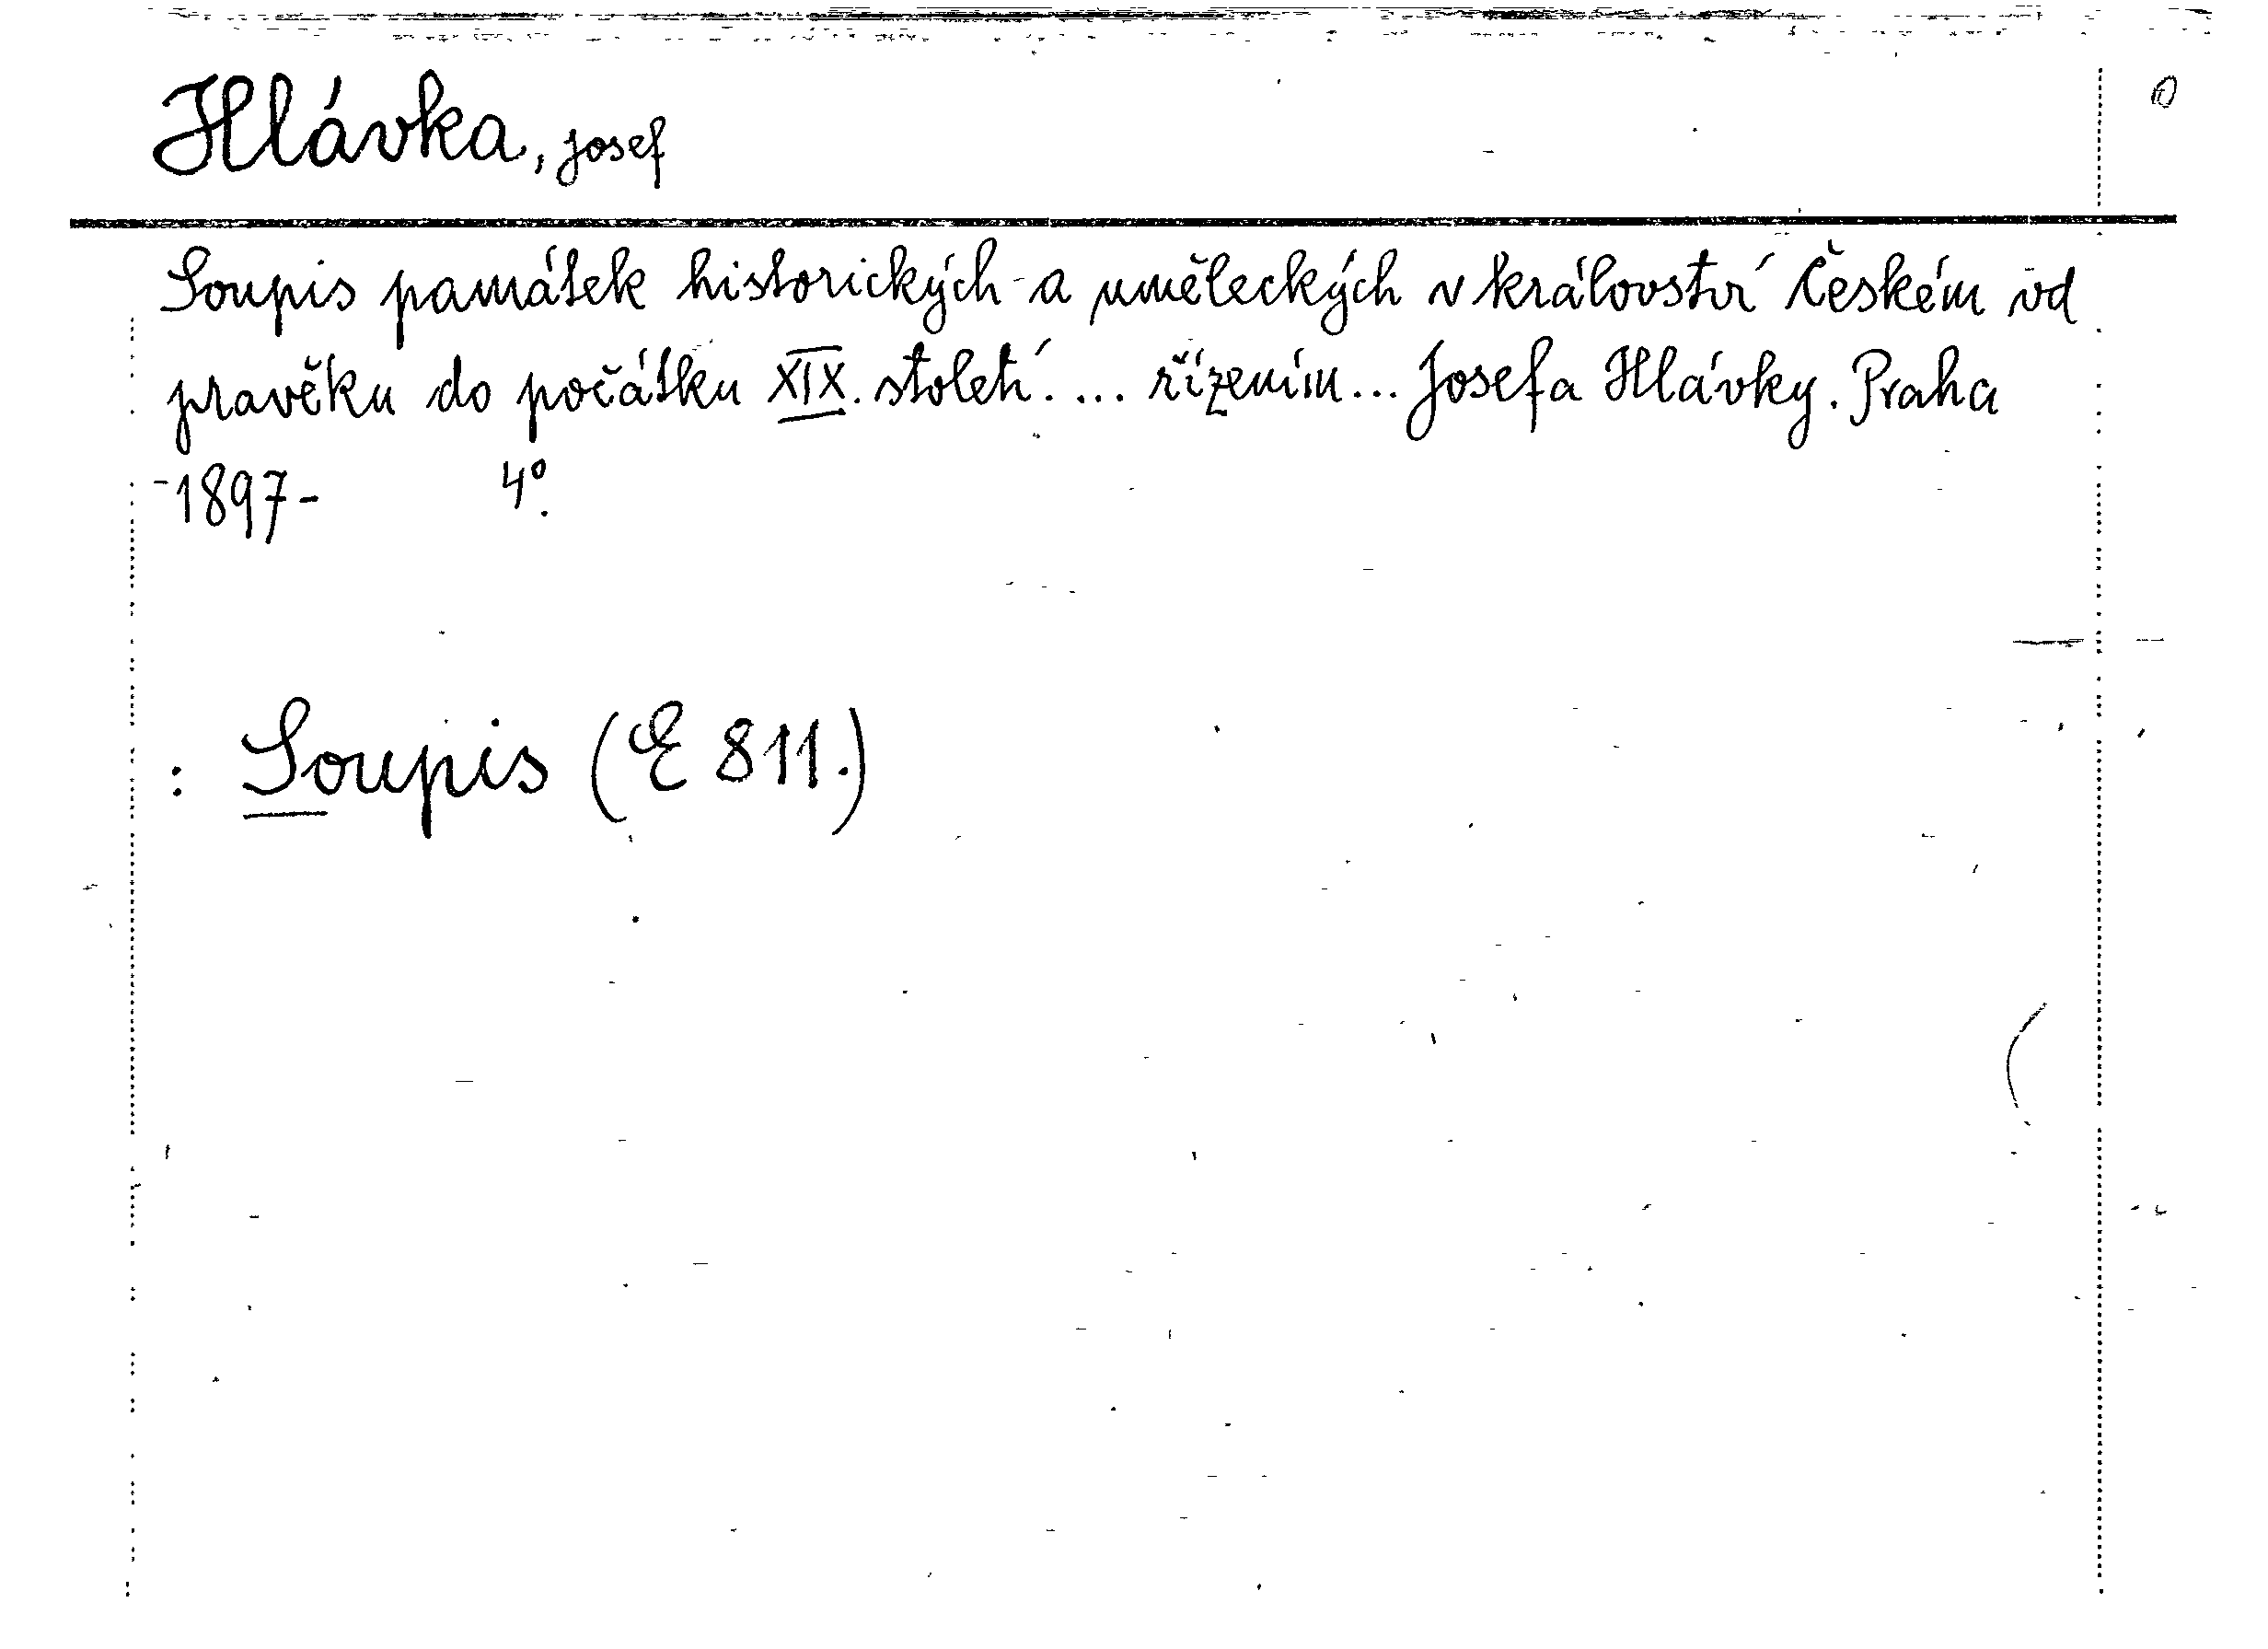 Hlávka, Josef
Soupis památek historických a uměleckých v království Českém od
pravěku do počátku XIX. století. ... řízením... Josefa Hlávky. Praha
1897- 4°.
: Soupis (E 811.)